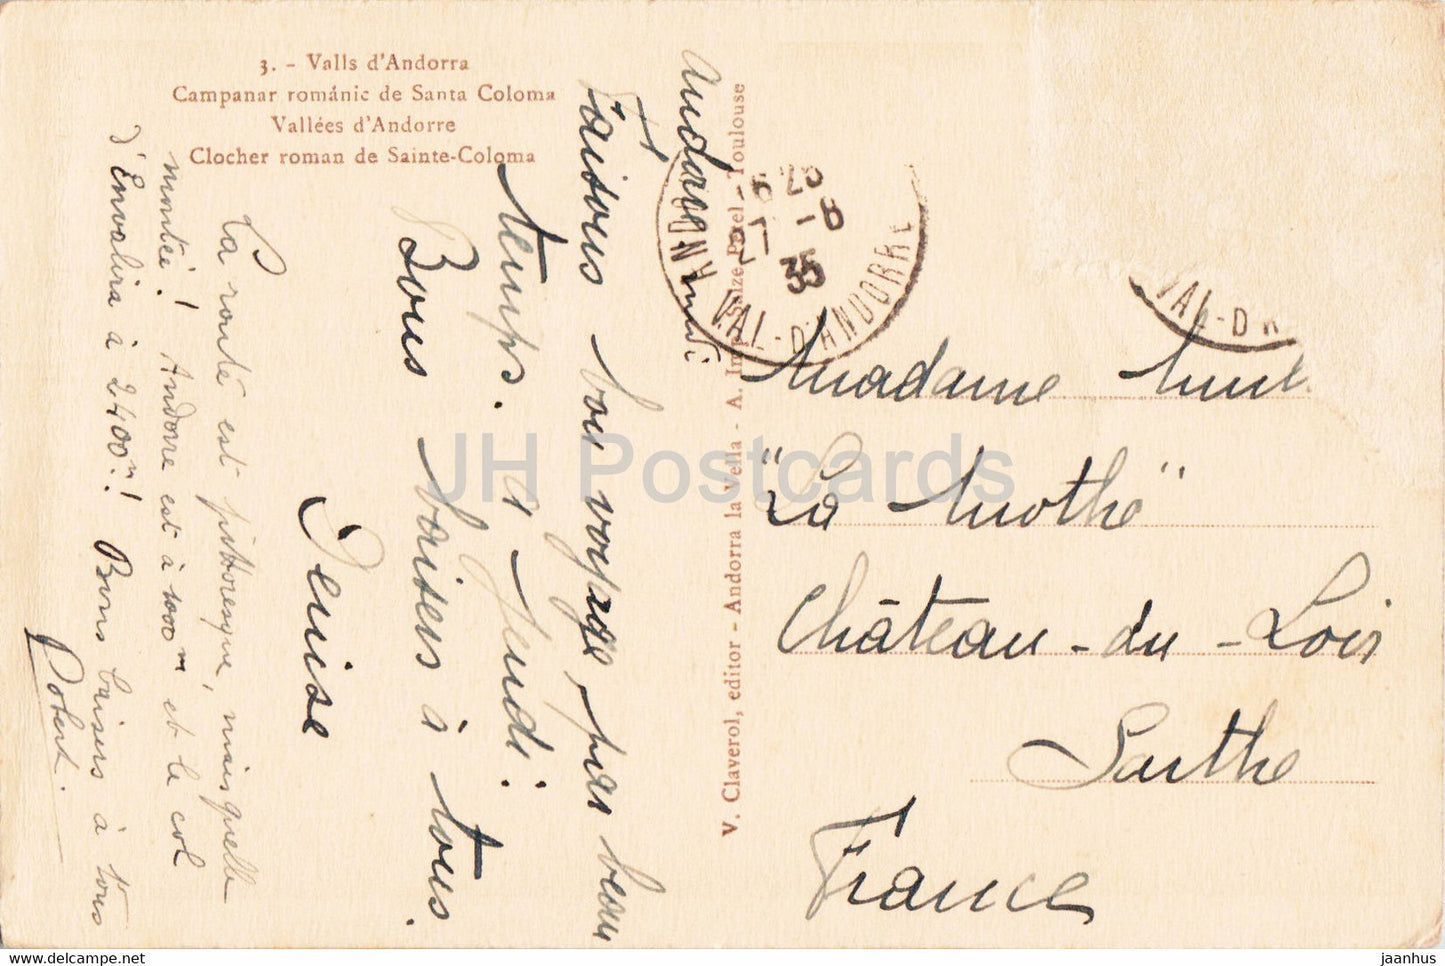 3. - Valls d'Andorra
Campanar románic de Santa Coloma
Vallées d'Andorre
Clocher roman de Sainte-Coloma
Andorre mardi
Faisons bon voyage par beau
temps. à Jeudi.
Bons baisers à tous.
Denise
La route est pittoresque, mais quelle
montée! Andorre est à 1000 m et le col
d'Envalira à 2400 m! Bons baisers à tous
Robert.
V. Claverol, editor - Andorra la Vella - A. Imp. Toulouse
ANDORRE
27 -8
35
VAL-D'ANDORRE
VAL-D'A
Madame
"La Mothe"
Château-du-Loir
Sarthe
France
JH Postcards
www.delcampe.net
jaanhus